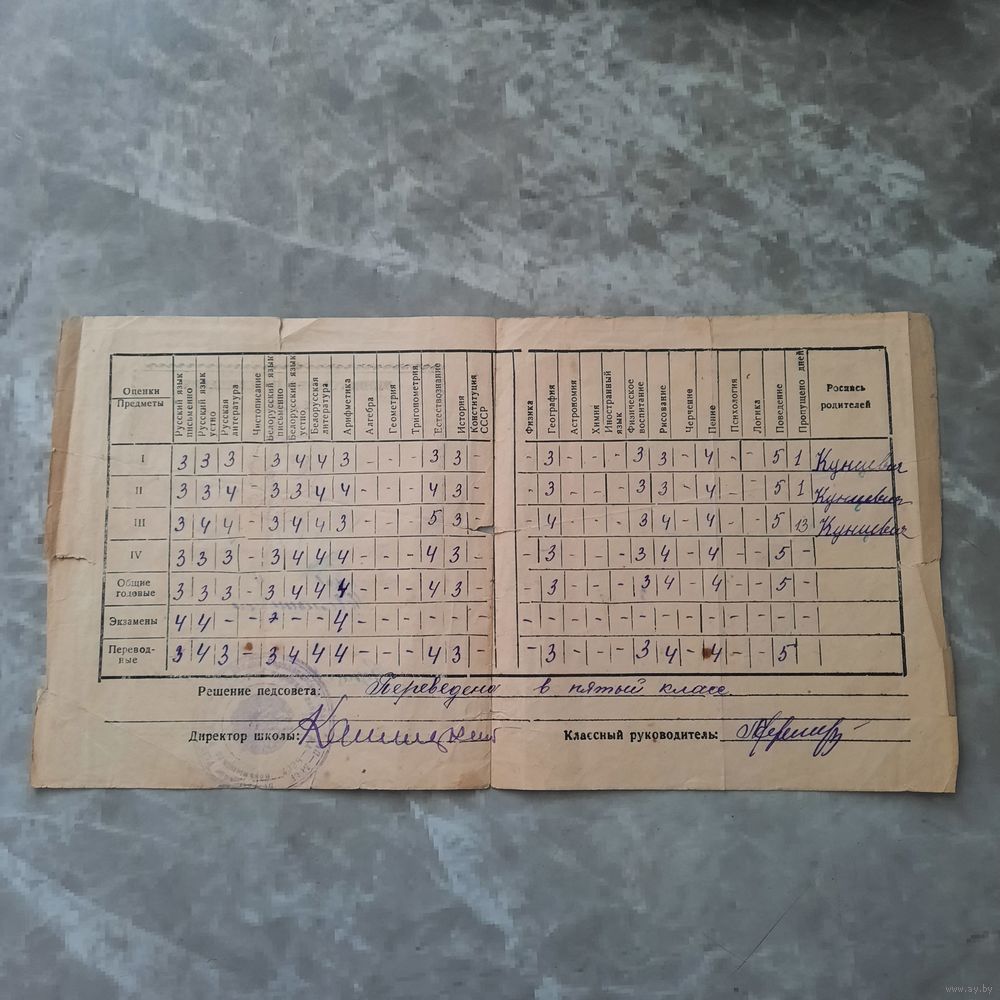 Оценки Предметы Русский язык письменно Русский язык устно Русская литература Чистописание Белорусский язык письменно Белорусский язык устно Белорусская литература Арифметика Алгебра Геометрия Тригонометрия Естествознание История Конституция СССР Физика География Астрономия Химия Иностранный язык Физическое воспитание Рисование Черчение Пение Психология Логика Поведение Пропущено дней Роспись родителей
I 3 3 3 - 3 4 4 3 - - - 3 3 - - 3 - - - 3 3 - 4 - - 5 1 Кунцевич
II 3 3 4 - 3 3 4 4 - - - 4 3 - - 3 - - - 3 3 - 4 - - 5 1 Кунцевич
III 3 4 4 - 3 4 4 3 - - - 5 3 - - 4 - - - 3 4 - 4 - - 5 13 Кунцевич
IV 3 3 3 - 3 4 4 4 - - - 4 3 - - 3 - - - 3 4 - 4 - - 5 -
Общие годовые 3 3 3 - 3 4 4 4 - - - 4 3 - - 3 - - - 3 4 - 4 - - 5 -
Экзамены 4 4 - - - - 4 - - - - - - - - - - - - - - - - - - -
Переводные 3 4 3 - 3 4 4 4 - - - 4 3 - - 3 - - - 3 4 - 4 - - 5
Решение педсовета: Переведена в пятый класс
Директор школы: Классный руководитель:
www.ay.by